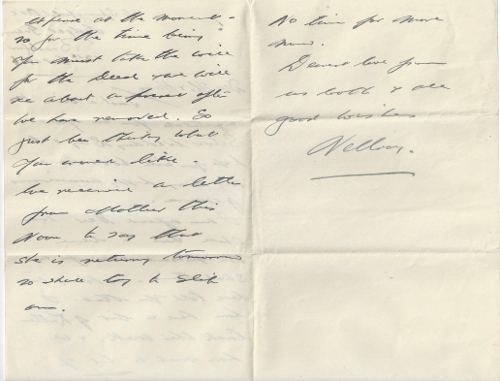 expense at the moment -
so for the time being
you must take the will
for the deed & we will
see about a present after
we has removed. So
just be thinking what
you would like.
We received a letter
from Mother this
Noon to say that
she is returning tomorrow
so shall try to slip
No time for more
now.
Dearest love from
us both & all
good wishes